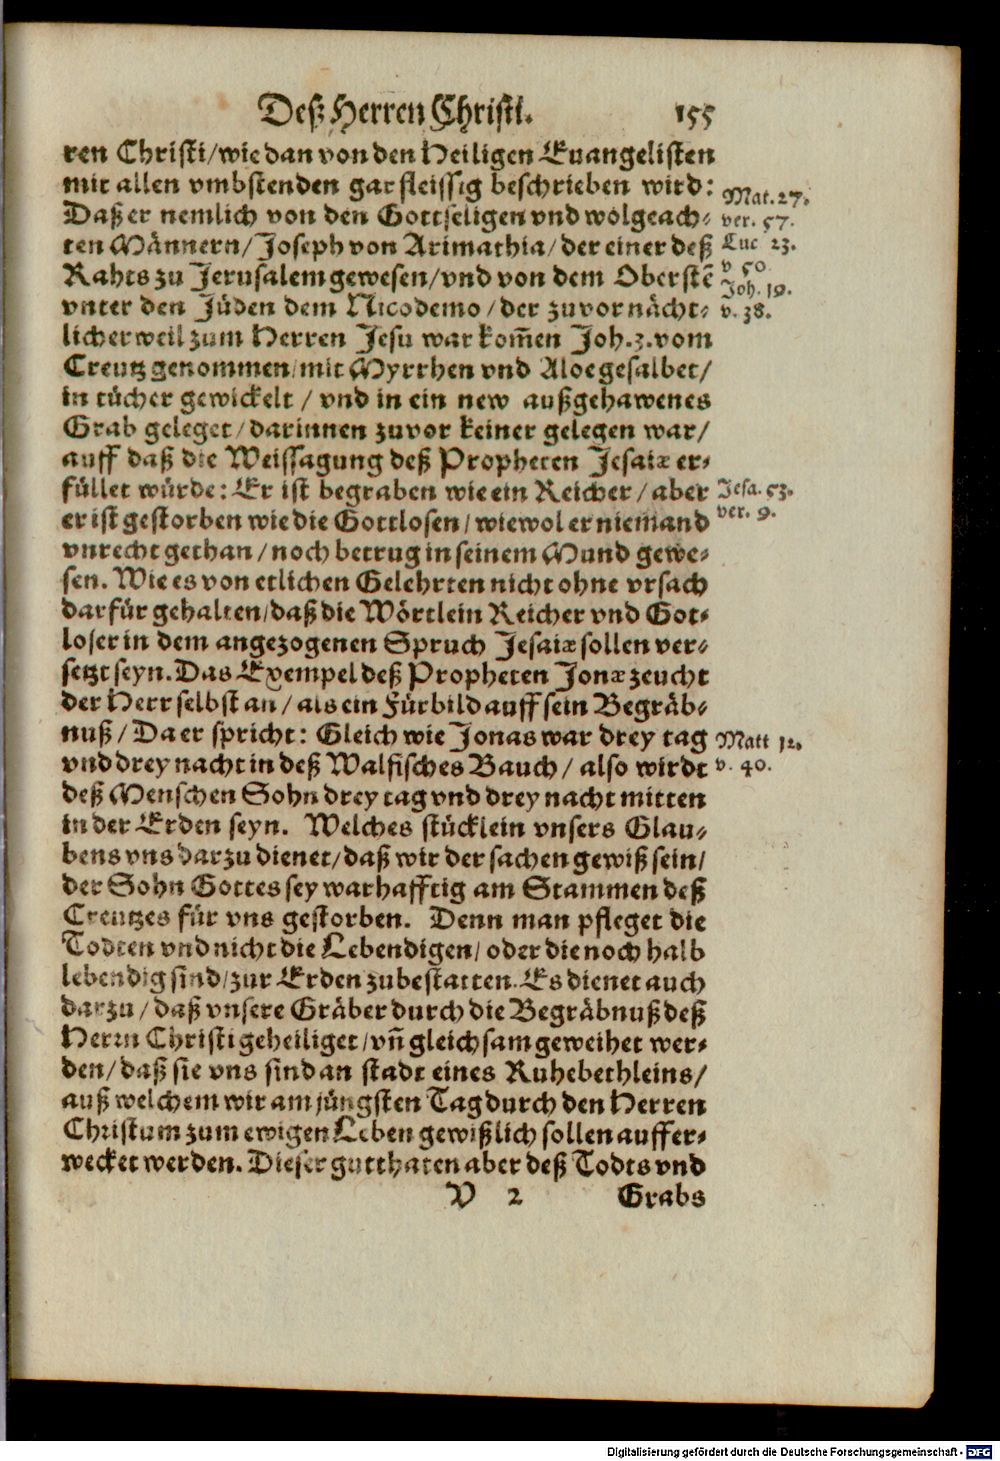 Deß Herren Christi. 155
ren Christi/wie dan von den Heiligen Euangelisten
mit allen vmbstenden gar fleissig beschrieben wird:
Daß er nemlich von den Gottseligen vnd wolgeach-
ten Männern/Joseph von Arimathia/der einer deß
Rahts zu Jerusalem gewesen/vnd von dem Oberstē
vnter den Jüden dem Nicodemo/der zuvor nächt-
licher weil zum Herren Jesu war kom̃en Joh.3.vom
Creutz genommen/mit Myrrhen vnd Aloe gesalbet/
in tücher gewickelt/vnd in ein new außgehawenes
Grab geleget/darinnen zuvor keiner gelegen war/
auff daß die Weissagung deß Propheten Jesaiæ er-
füllet würde: Er ist begraben wie ein Reicher/aber
er ist gestorben wie die Gottlosen/wiewol er niemand
vnrecht gethan/noch betrug in seinem Mund gewe-
sen. Wie es von etlichen Gelehrten nicht ohne vrsach
darfür gehalten/daß die Wörtlein Reicher vnd Got-
loser in dem angezogenen Spruch Jesaiæ sollen ver-
setzt seyn. Das Exempel deß Propheten Jonæ zeucht
der Herr selbst an/als ein Fürbild auff sein Begräb-
nuß/Da er spricht: Gleich wie Jonas war drey tag
vnd drey nacht in deß Walfisches Bauch/also wirdt
deß Menschen Sohn drey tag vnd drey nacht mitten
in der Erden seyn. Welches stücklein vnsers Glau-
bens vns darzu dienet/daß wir der sachen gewiß sein/
der Sohn Gottes sey warhafftig am Stammen deß
Creutzes für vns gestorben. Denn man pfleget die
Todten vnd nicht die Lebendigen/oder die noch halb
lebendig sind/zur Erden zubestatten. Es dienet auch
darzu/daß vnsere Gräber durch die Begräbnuß deß
Herrn Christi geheiliget/vñ gleichsam geweihet wer-
den/daß sie vns sind an stadt eines Ruhebethleins/
auß welchem wir am jüngsten Tag durch den Herren
Christum zum ewigen Leben gewißlich sollen auffer-
wecket werden. Dieser gutthaten aber deß Todts vnd
V 2 Grabs
Mat. 27.
ver. 57.
Luc 23.
v 50.
Joh. 19.
v. 38.
Jesa. 53.
ver. 9.
Matt 12.
v. 40.
Digitalisierung gefördert durch die Deutsche Forschungsgemeinschaft - DFG